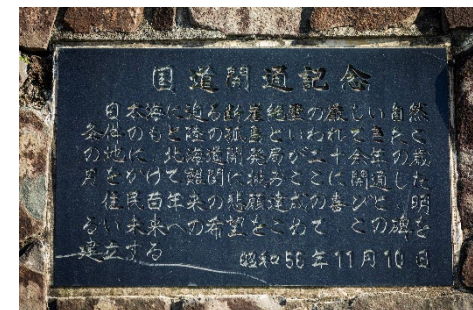 国道開通記念
日本海に迫る断崖絶壁の厳しい自然
条件のもと陸の孤島といわれてきたこ
の地に 北海道開発局が二十余年の歳
月をかけて難関に挑みここに開通した
住民百年来の悲願達成の喜びと、明
るい未来への希望をこめて この碑を
建立する 昭和56年11月10日